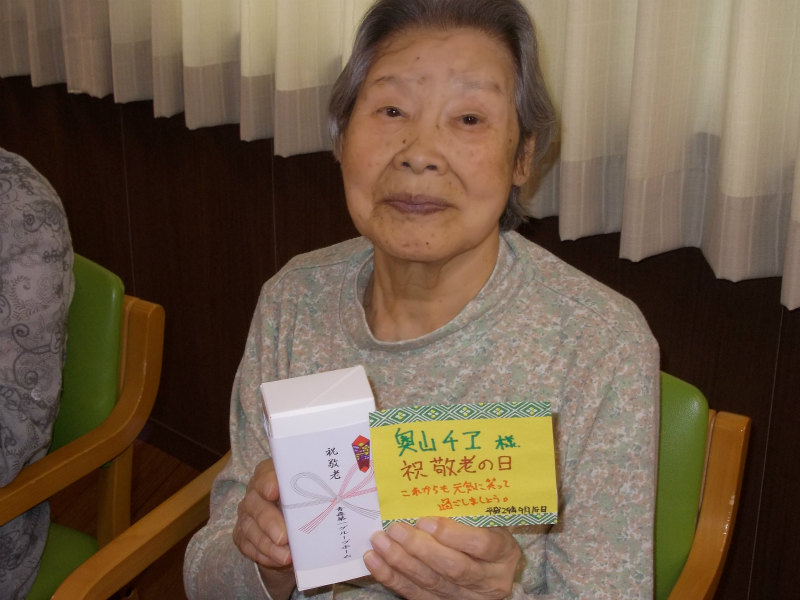 祝敬老
青森第一グループホーム
奥山チヱ 様
祝 敬老の日
これからも 元気に笑って
過ごしましょう。
平成29年9月18日